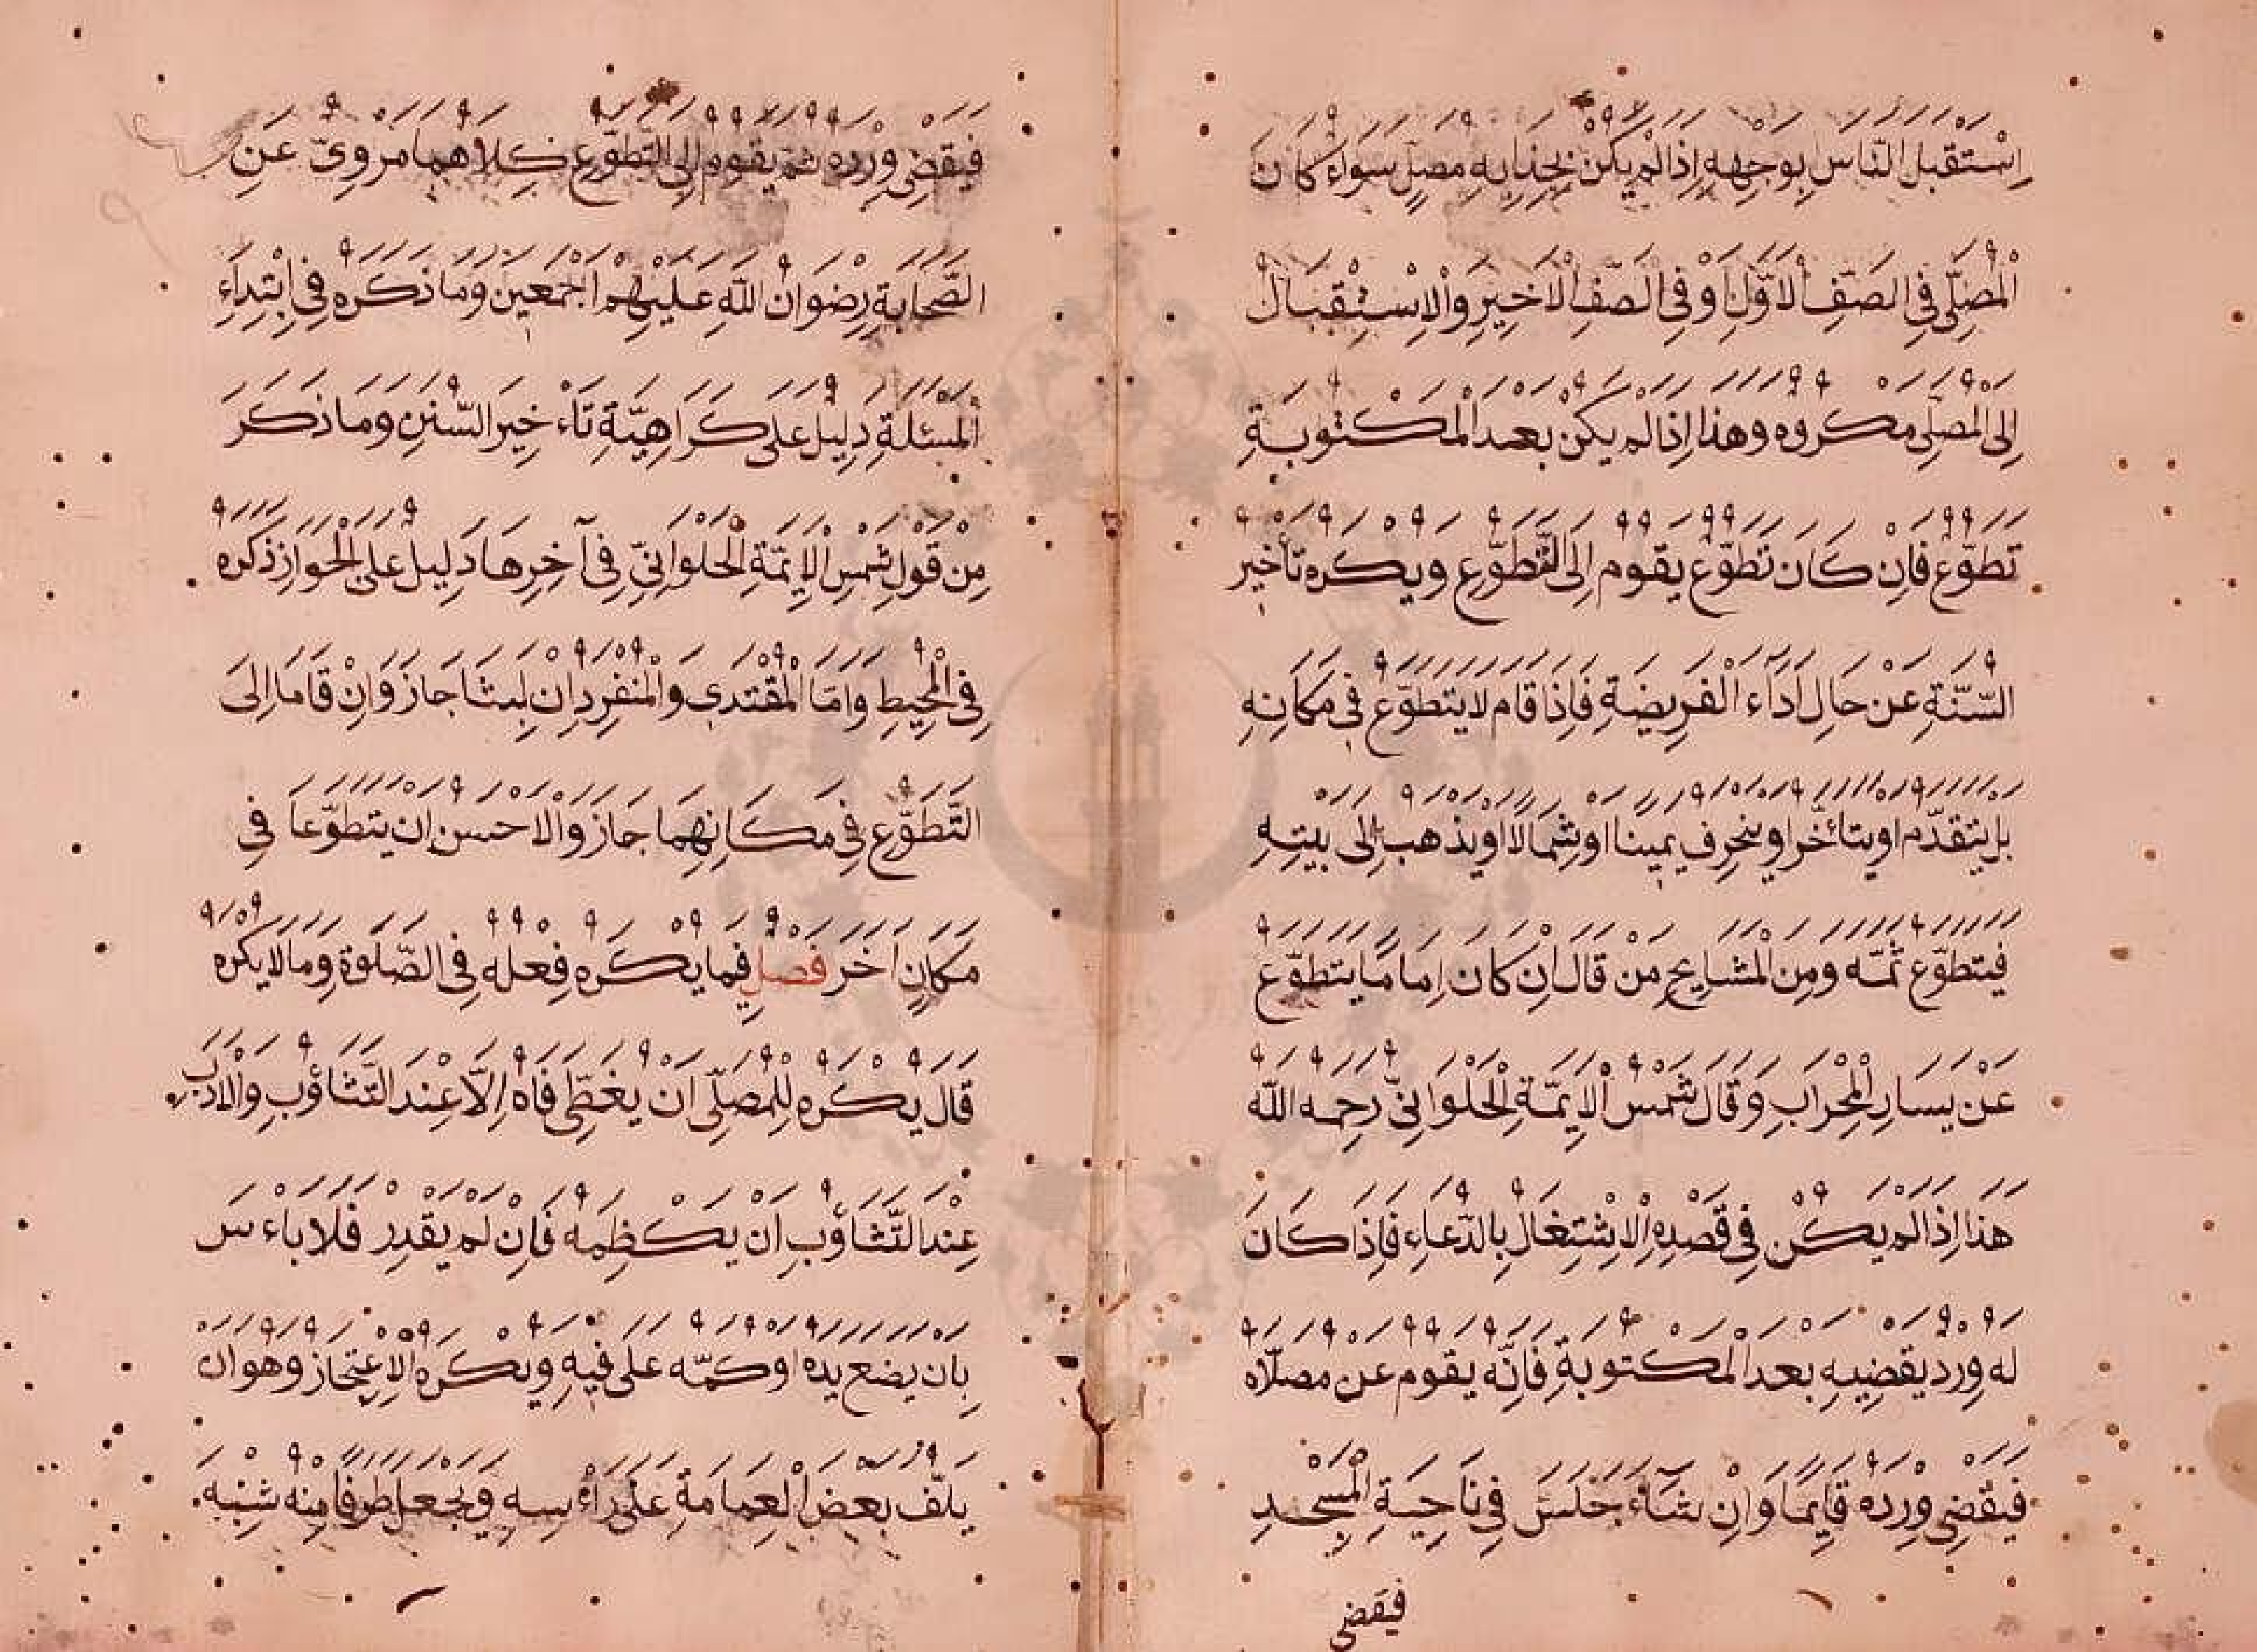 اِسْتَقْبَلَ النَّاسَ بِوَجْهِهِ اِذَا لَمْ يَكُنْ بِحِذَايِهِ مُصَلٍّ سَوَاءٌ كَانَ
الْمُصَلِّي فِي الصَّفِّ الْاَوَّلِ اَوْ فِي الصَّفِّ الْاَخِيرِ وَالْاِسْتِقْبَالُ
اِلَى الْمُصَلِّي مَكْرُوهٌ وَهٰذَا اِذَا لَمْ يَكُنْ بَعْدَ الْمَكْتُوبَةِ
تَطَوُّعٌ فَاِنْ كَانَ تَطَوُّعٌ يَقُومُ اِلَى التَّطَوُّعِ وَيُكْرَهُ تَأْخِيرُ
السُّنَّةِ عَنْ حَالِ اَدَاءِ الْفَرِيضَةِ فَاِذَا قَامَ لَا يَتَطَوَّعُ فِي مَكَانِهِ
بَلْ يَتَقَدَّمُ اَوْ يَتَأَخَّرُ اَوْ يَنْحَرِفُ يَمِينًا اَوْ شِمَالًا اَوْ يَذْهَبُ اِلَى بَيْتِهِ
فَيَتَطَوَّعُ ثَمَّهْ وَمِنَ الْمَشَايِخِ مَنْ قَالَ اِنْ كَانَ اِمَامًا يَتَطَوَّعُ
عَنْ يَسَارِ الْمِحْرَابِ وَقَالَ شَمْسُ الْاَئِمَّةِ الْحَلْوَانِيُّ رَحِمَهُ اللّٰهُ
هٰذَا اِذَا لَمْ يَكُنْ فِي قَصْدِهِ الْاِشْتِغَالُ بِالدُّعَاءِ فَاِذَا كَانَ
لَهُ وِرْدٌ يَقْضِيهِ بَعْدَ الْمَكْتُوبَةِ فَاِنَّهُ يَقُومُ عَنْ مُصَلَّاهُ
فَيَقْضِي وِرْدَهُ قَايِمًا وَاِنْ شَاءَ جَلَسَ فِي نَاحِيَةِ الْمَسْجِدِ
فيقضى
فَيَقْضِي وِرْدَهُ ثُمَّ يَقُومُ اِلَى التَّطَوُّعِ كِلَاهُمَا مَرْوِيٌّ عَنِ
الصَّحَابَةِ رِضْوَانُ اللّٰهِ عَلَيْهِمْ اَجْمَعِينَ وَمَا ذَكَرَهُ فِي اِبْتِدَاءِ
الْمَسْئَلَةِ دَلِيلٌ عَلَى كَرَاهِيَّةِ تَاءْخِيرِ السُّنَنِ وَمَا ذَكَرَ
مِنْ قَوْلِ شَمْسِ الْاَئِمَّةِ الْحَلْوَانِيِّ فِي آخِرِهَا دَلِيلٌ عَلَى الْجَوَازِ ذَكَرَهُ
فِي الْمُحِيطِ وَاَمَّا الْمُقْتَدِي وَالْمُنْفَرِدُ اِنْ لَبِثَا جَازَ وَاِنْ قَامَا اِلَى
التَّطَوُّعِ فِي مَكَانِهِمَا جَازَ وَالْاَحْسَنُ اَنْ يَتَطَوَّعَا فِي
مَكَانٍ اٰخَرَ فَصْلٌ فِيمَا يُكْرَهُ فِعْلُهُ فِي الصَّلٰوةِ وَمَا لَا يُكْرَهُ
قَالَ يُكْرَهُ لِلْمُصَلِّي اَنْ يُغَطِّيَ فَاهُ اِلَّا عِنْدَ التَّثَاؤُبِ وَالْاَدَبُ
عِنْدَ التَّثَاؤُبِ اَنْ يَكْظِمَهُ فَاِنْ لَمْ يَقْدِرْ فَلَا بَاءْسَ
بِاَنْ يَضَعَ يَدَهُ اَوْ كُمَّهُ عَلَى فِيهِ وَيُكْرَهُ الْاِعْتِجَارُ وَهُوَ اَنْ
يَلُفَّ بَعْضَ الْعِمَامَةِ عَلَى رَاءْسِهِ وَيَجْعَلَ طَرَفًا مِنْهُ شِبْهَ